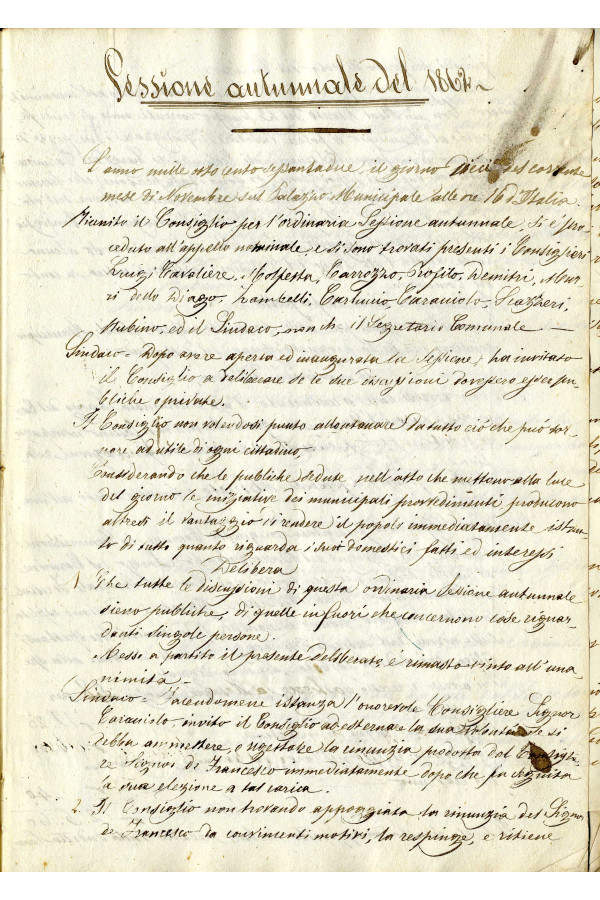 Sessione autunnale del 1862
L'anno mille otto cento sessantadue, il giorno dieci del corrente
mese di Novembre sul Palazzo Municipale alle ore 16 d'Italia
Riunito il Consiglio per l'ordinaria Sessione autunnale, si è pro
ceduto all'appello nominale, e si sono trovati presenti i Consiglieri
Luigi Cavaliere, Molfetta, Carrozzo, Profilo, Demitri, Mur
ri dello Diago, Zambelli, Carluccio Caraciolo, Scazzeri,
Rubino, ed il Sindaco, non che il Segretario Comunale
Sindaco = Dopo avere aperta ed inaugurata la Sessione, ha invitato
il Consiglio a deliberare se le due discussioni dovessero esser pu
bliche o private.
Il Consiglio non volendosi punto allontanare da tutto ciò che può tor
nare ad utile di ogni cittadino,
Considerando che le publiche sedute nell'atto che mettono alla luce
del giorno le iniziative dei municipali provvedimenti producono
altresì il vantaggio di rendere il popolo immediatamente istrut
to di tutto quanto riguarda i suoi domestici fatti ed interessi
Delibera
1. Che tutte le discussioni di questa ordinaria Sessione autunnale
sieno publiche, di quelle in fuori che concernono cose riguar
danti singole persone.
Messo a partito il presente deliberato, è rimasto vinto all'una
nimità.
Sindaco = Facendomene istanza l'onorevole Consigliere Signor
Caraciolo, invito il Consiglio ad esternare la sua volontà se si
debba ammettere, o rigettare la rinunzia prodotta dal Consiglie
re Signor di Francesco immediatamente dopo che fu seguita
la sua elezione a tal carica.
2. Il Consiglio non trovando appoggiata la rinunzia del Signor
di Francesco da convincenti motivi, la respinge, e ritiene